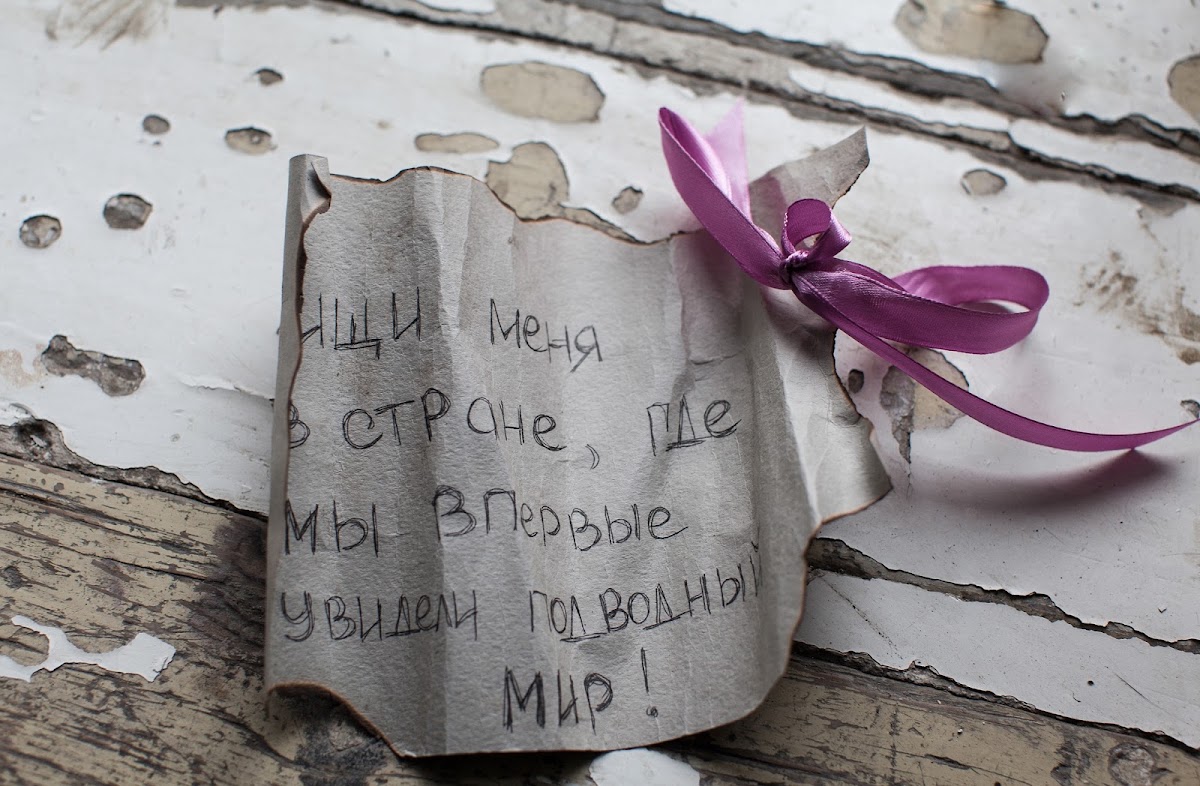 ищи меня
в стране, где
мы впервые
увидели подводный
мир!